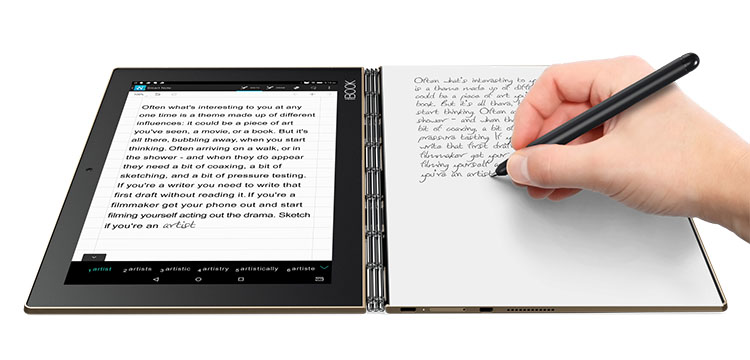 Often what's interesting to you at any
one time is a theme made up of different
influences: it could be a piece of art
you've seen, a movie, or a book. But it's
all there, bubbling away, when you start
thinking. Often arriving on a walk, or in
the shower - and when they do appear
they need a bit of coaxing, a bit of
sketching, and a bit of pressure testing.
If you're a writer you need to write that
first draft without reading it. If you're a
filmmaker get your phone out and start
filming yourself acting out the drama. Sketch
if you're an artist
1 artist 2 artists 3 artistic 4 artistry 5 artistically 6 artiste
BOOK
Often what's interesting to
is a theme made up of
could be a piece of art
book. But it's all there,
start thinking. Often
shower - and when
bit of coaxing, a bit of
pressure testing. If
write that first
filmmaker get your
filming yourself
you're an artist